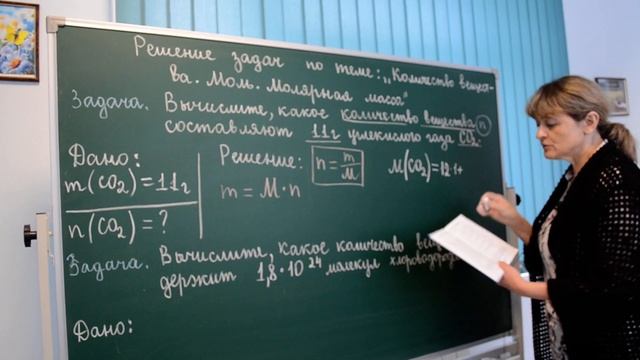 Решение задач по теме: „Количество вещест-
ва. Моль. Молярная масса"
Задача. Вычислите, какое количество вещества n
составляют 11г углекислого газа CO₂.
Дано:
m(CO₂)=11г
n(CO₂)=?
Решение: n=m/M M(CO₂)=12·1+
m=M·n
Задача. Вычислите, какое количество
держит 1,8·10²⁴ молекул
Дано: